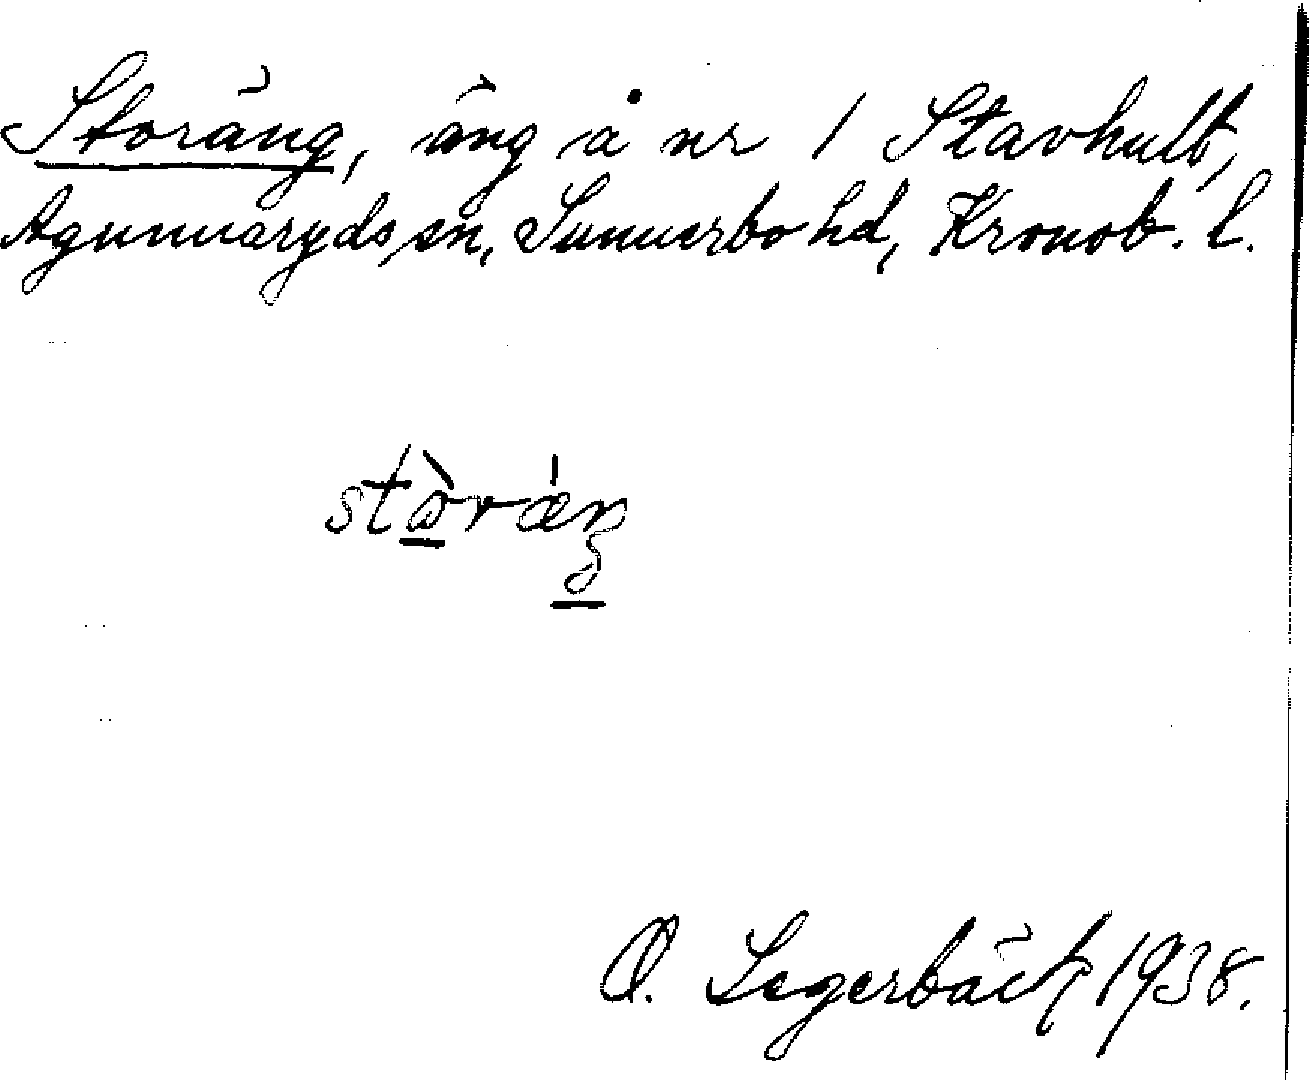 Storäng, äng å nr 1 Stavhult,
Agunnaryds sn, Sunnerbo hd, Kronob. l.
stòrǽŋ
O. Legerbäck 1938.